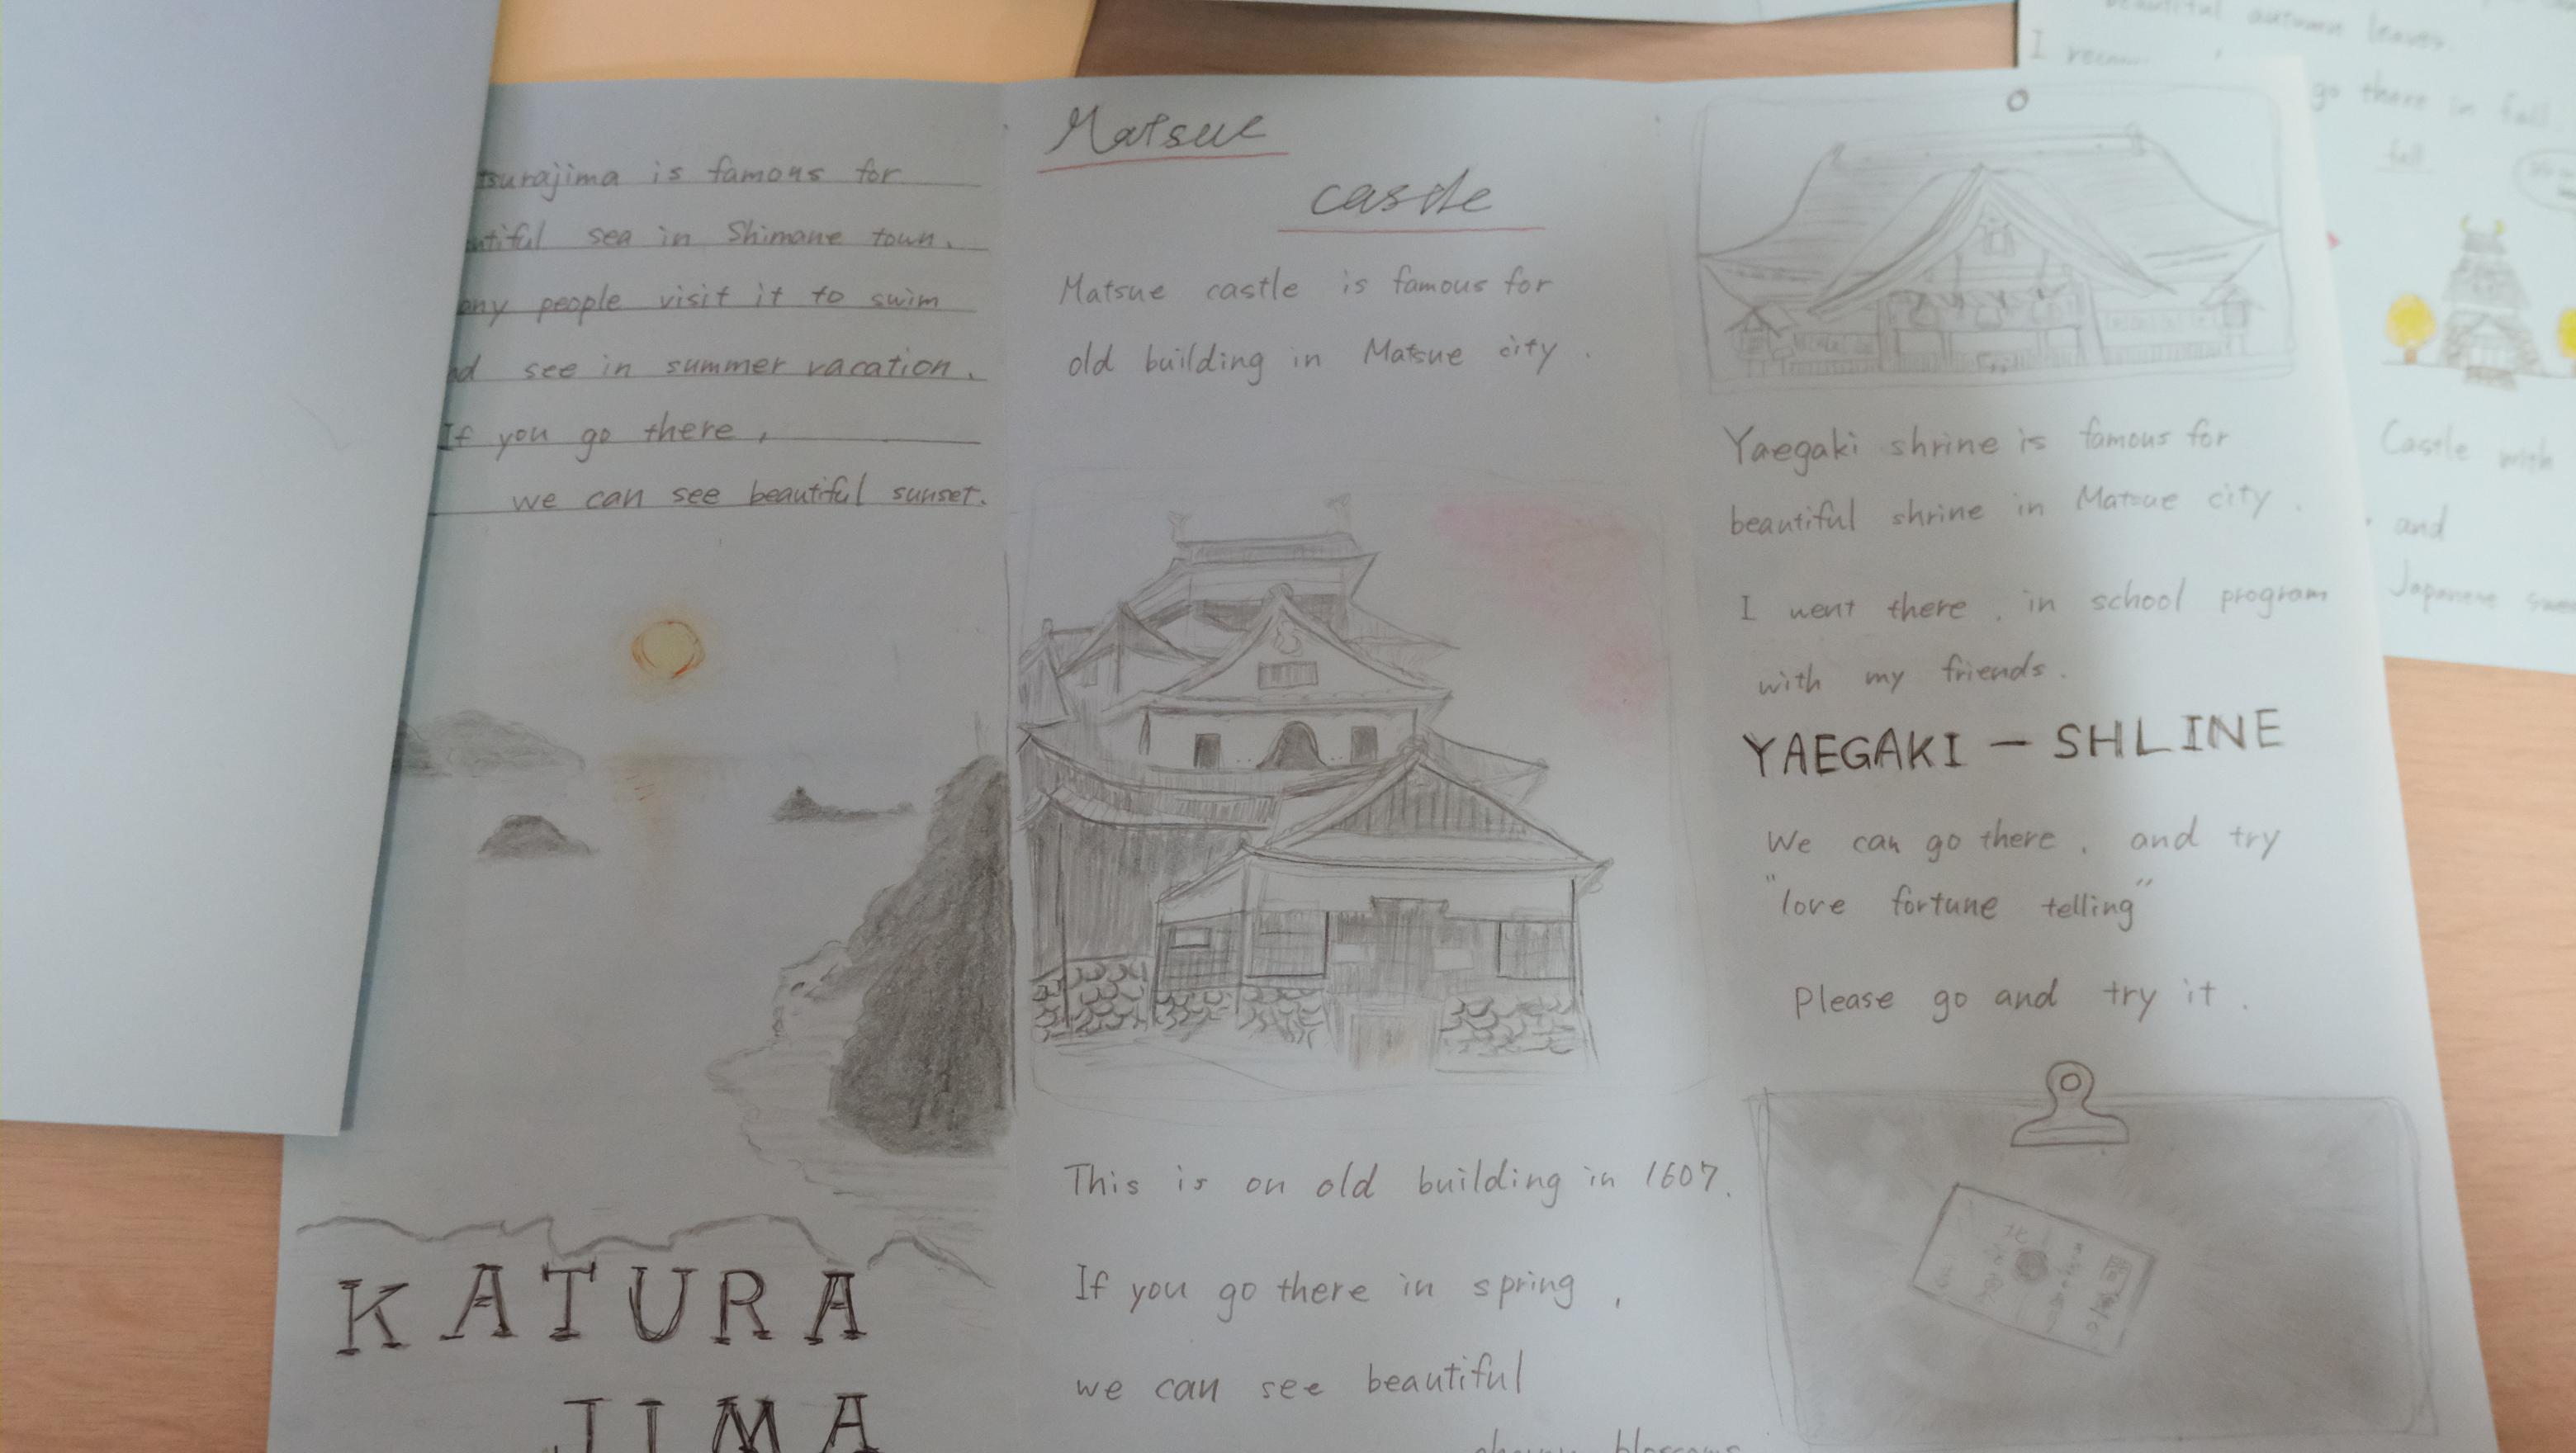 tsurajima is famous for
utiful sea in Shimane town.
any people visit it to swim
nd see in summer vacation.
If you go there,
we can see beautiful sunset.
KATURA
JIMA
Matsue
castle
Matsue castle is famous for
old building in Matsue city.
This is on old building in 1607.
If you go there in spring,
we can see beautiful
cherry blossoms
Yaegaki shrine is famous for
beautiful shrine in Matsue city.
I went there. in school program
with my friends.
YAEGAKI - SHLINE
We can go there. and try
"love fortune telling"
Please go and try it.
beautiful autumn leaves.
I
go there in fall
fall
Castle with
and
Japanese